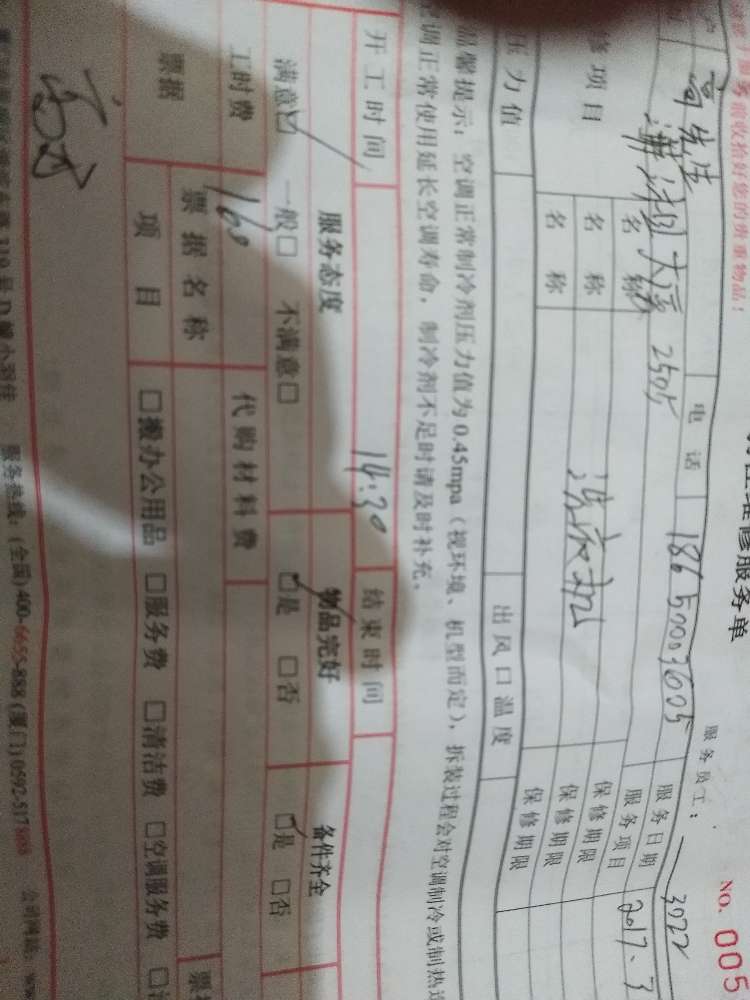 前收拾好您的贵重物品！
维修服务单
NO. 005
服务员工： 3022
高先生 电话 18650003605 服务日期 2017.3
大 2505 服务项目
修项目 名称 保修期限
名称 洗衣机 保修期限
名称 保修期限
压力值 出风口温度
温馨提示：空调正常制冷剂压力值为0.45mpa（视环境、机型而定），拆装过程会对空调制冷或制热造
空调正常使用延长空调寿命，制冷剂不足时请及时补充。
开工时间 14:30 结束时间
服务态度 物品完好 备件齐全
满意☑ 一般□ 不满意□ ☑是 □否 ☑是 □否
工时费 160 代购材料费
票据 票据名称 票
项目 □搬办公用品 □服务费 □清洁费 □空调服务费
服务热线：(全国)400-6655-888 (厦门)0592-517 公司网站：www